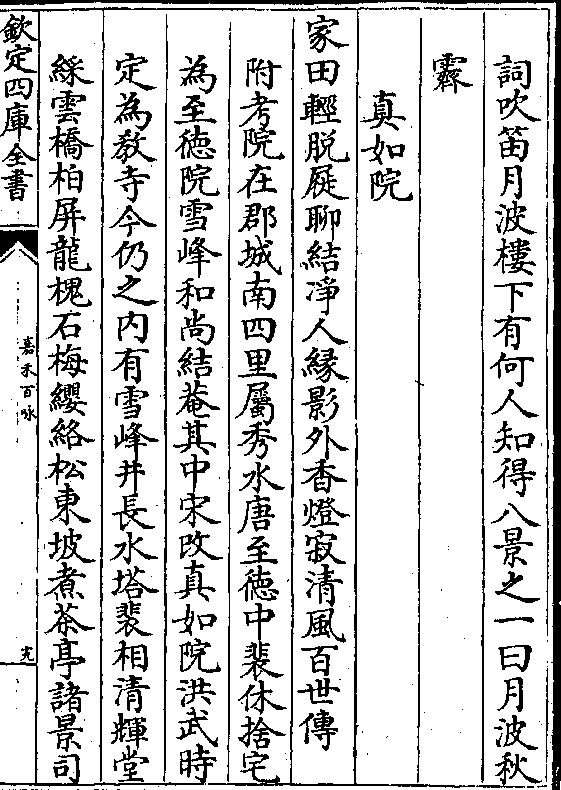 詞吹笛月波樓下有何人知得八景之一曰月波秋
霽
真如院
家田輕脱屣聊結凈人縁影外香燈寂清風百世傳
附考院在郡城南四里屬秀水唐至徳中裴休捨宅
為至徳院雪峰和尚結菴其中宋改真如院洪武時
定為教寺今仍之内有雪峰井長水塔裴相清輝堂
綵雲橋柏屏龍槐石梅纓絡松東坡煮茶亭諸景司
欽定四庫全書
嘉禾百咏